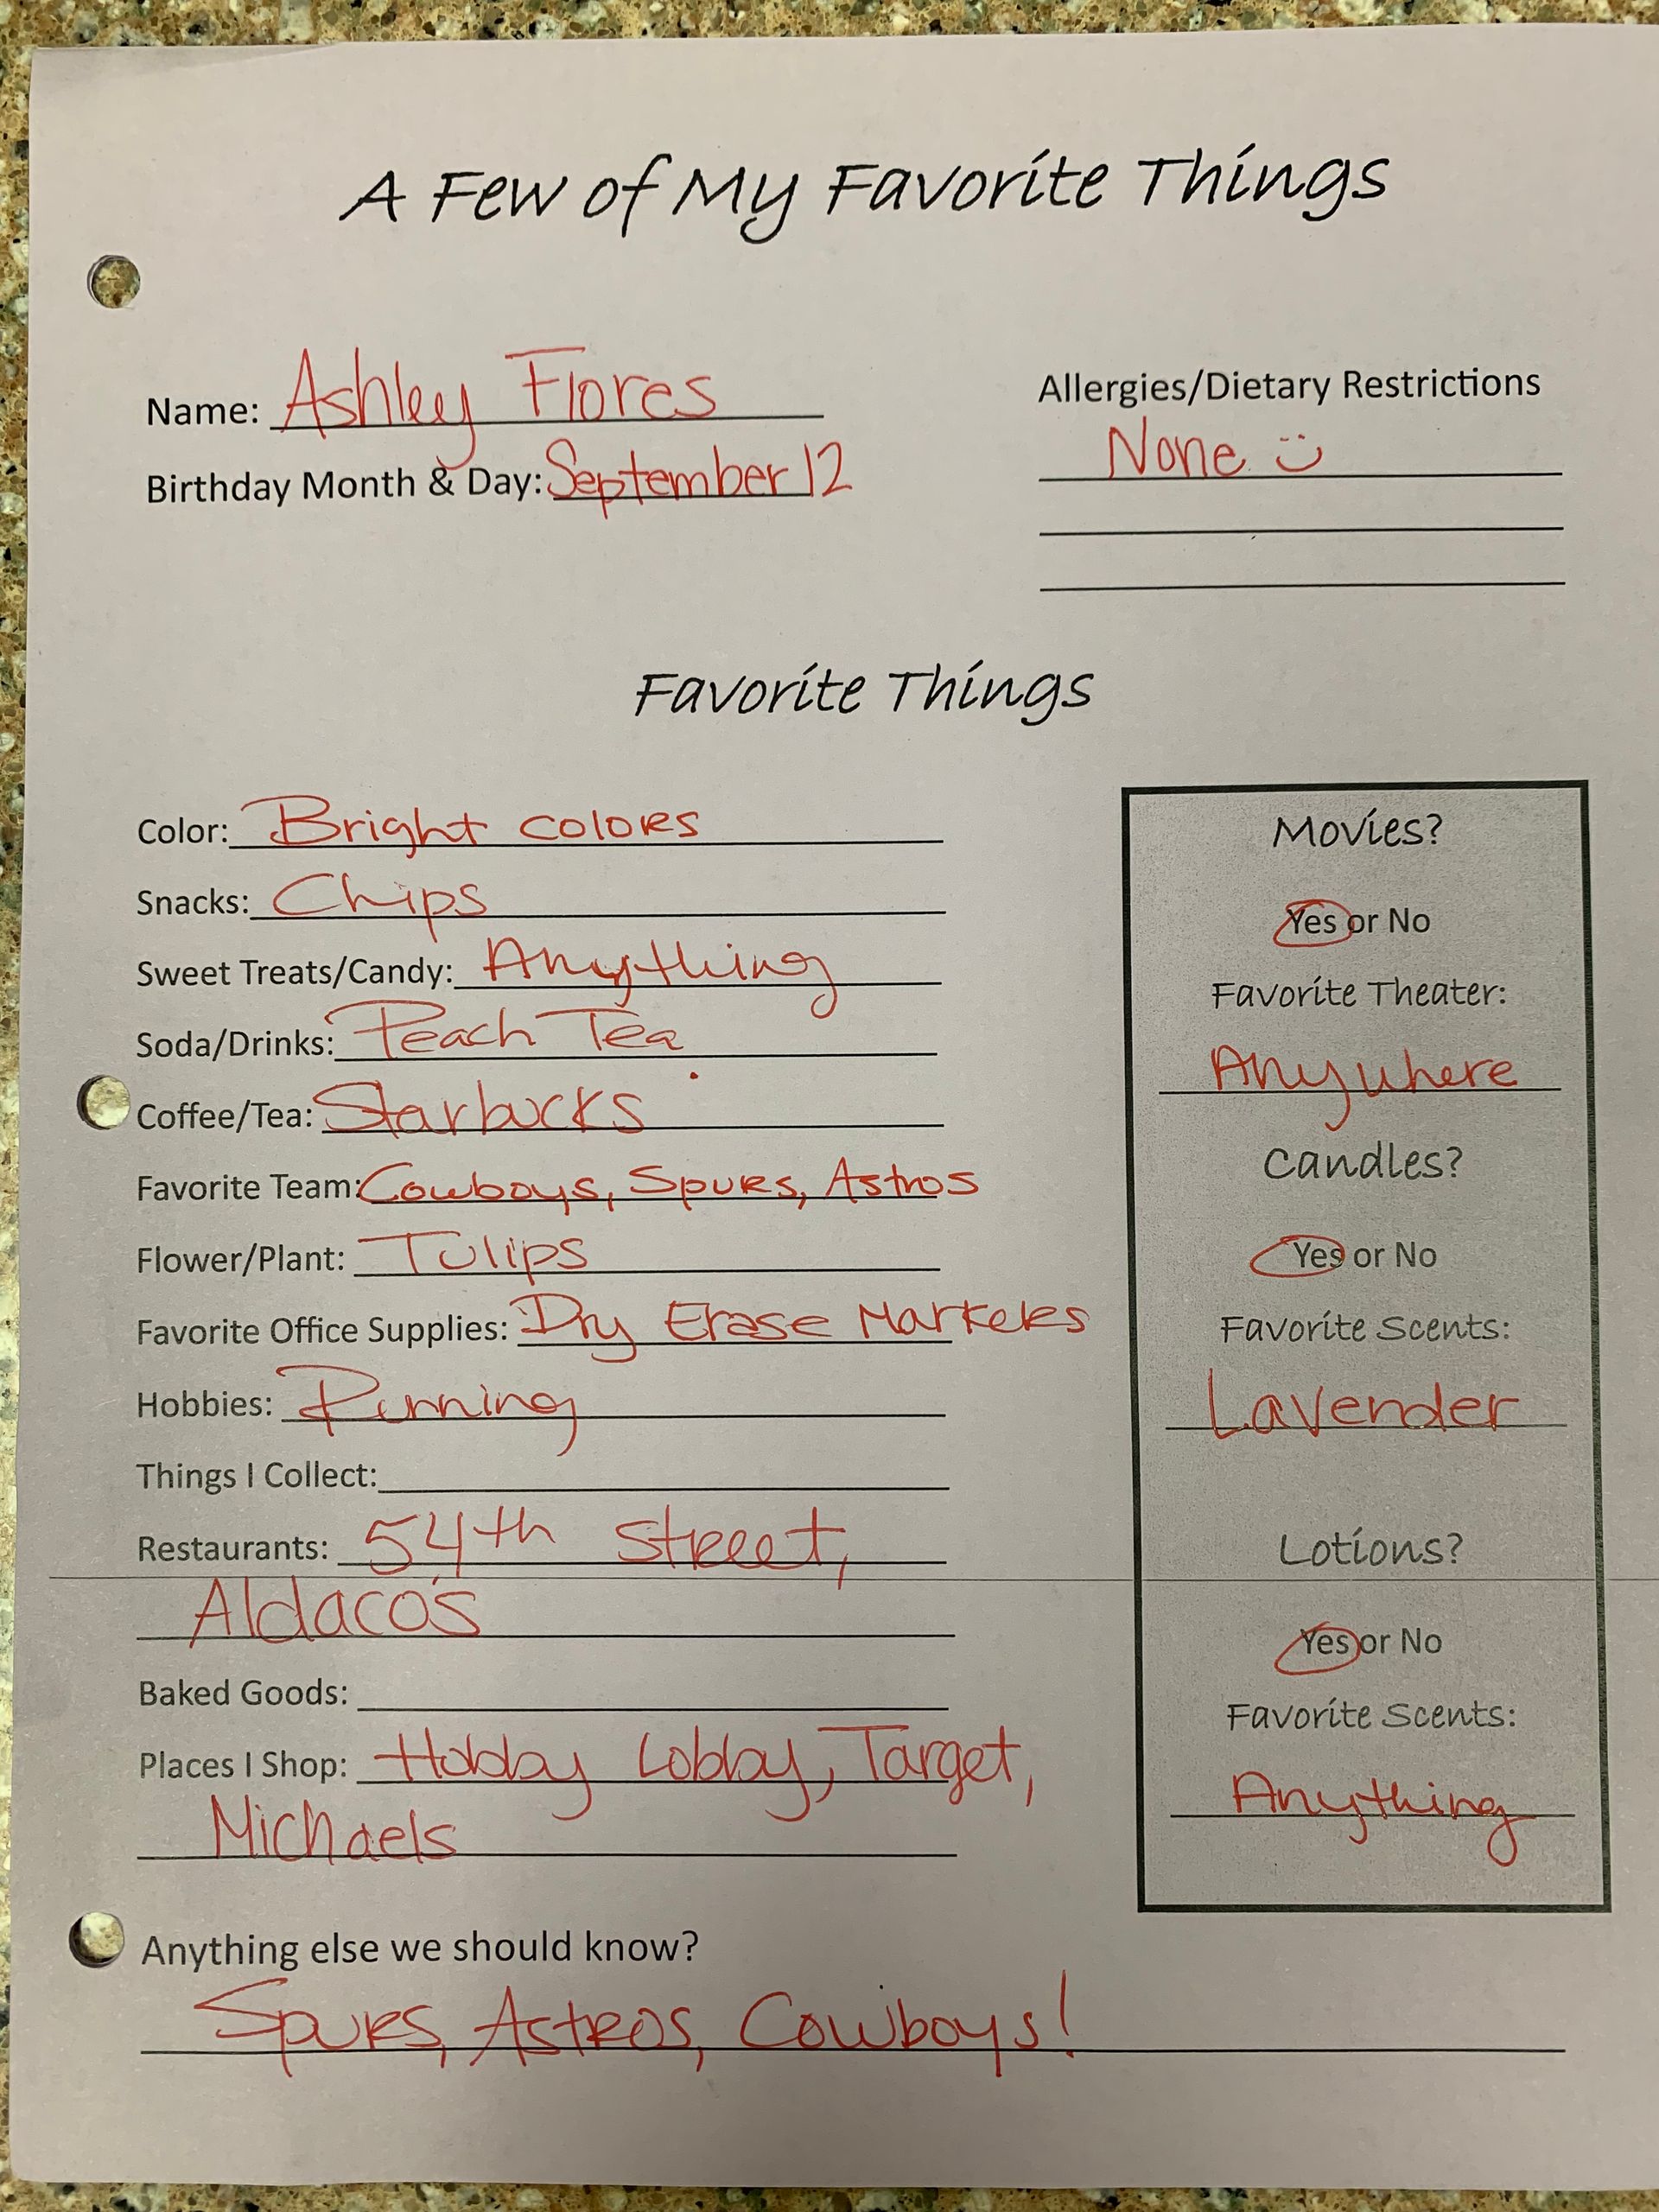 A Few of My Favorite Things
Name: Ashley Flores
Birthday Month & Day: September 12
Allergies/Dietary Restrictions
None :)
Favorite Things
Color: Bright colors
Snacks: Chips
Sweet Treats/Candy: Anything
Soda/Drinks: Peach Tea
Coffee/Tea: Starbucks
Favorite Team: Cowboys, Spurs, Astros
Flower/Plant: Tulips
Favorite Office Supplies: Dry Erase Markers
Hobbies: Running
Things I Collect:
Restaurants: 54th Street,
Aldaco's
Baked Goods:
Places I Shop: Hobby Lobby, Target,
Michaels
Movies?
Yes or No
Favorite Theater:
Anywhere
Candles?
Yes or No
Favorite Scents:
Lavender
Lotions?
Yes or No
Favorite Scents:
Anything
Anything else we should know?
Spurs, Astros, Cowboys!